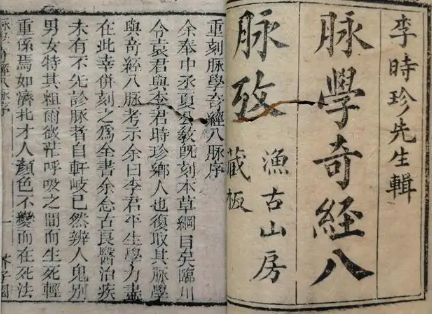 李時珍先生輯
脉學奇經八
脉攷
漁古山房
藏板
重刻脉學奇經八脉序
余奉中丞夏公教既刻本草綱目矣臨川
令袁君與李君時珍鄉人也復取其脉學
與奇經八脉考示余曰李君平生學力盡
在此幸併刻之為全書余念古良醫治疾
未有不先診脉者自軒岐已然辨人鬼別
男女特其粗爾微茫呼吸之間而生死輕
重係焉如濟北才人顏色不變而在死法